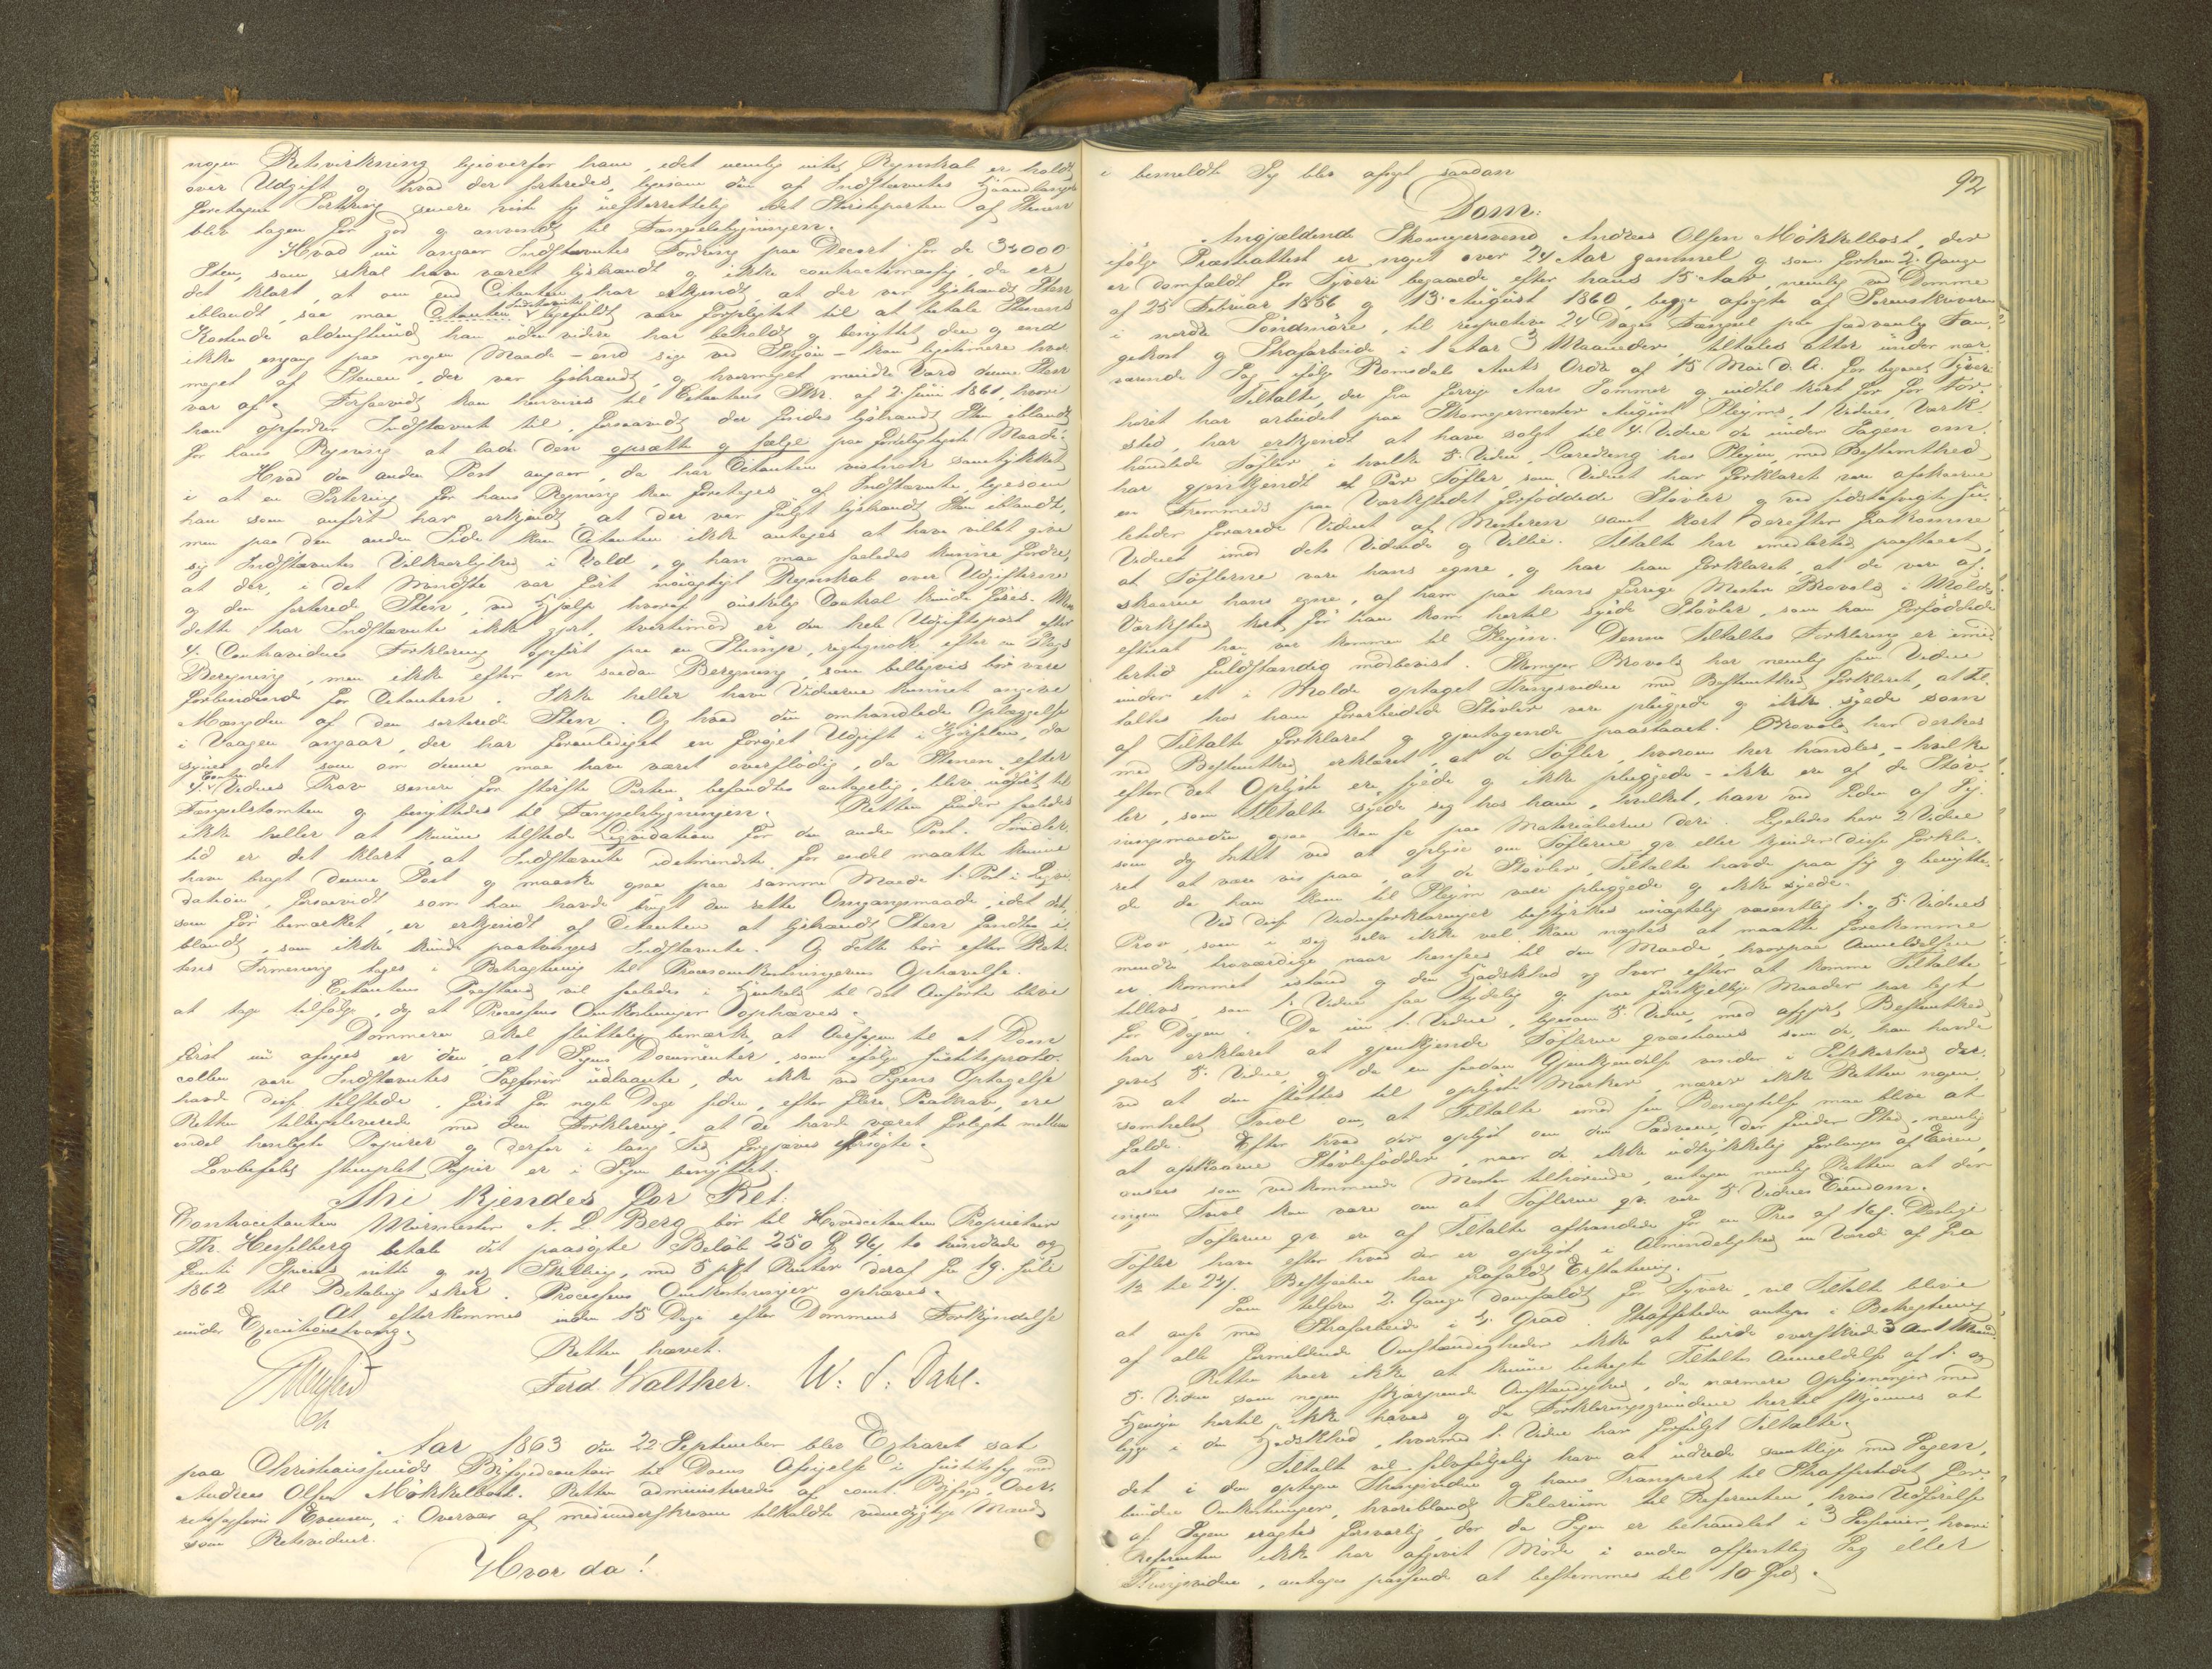 nogen Retsvirkning ligeoverfor ham, idet nemlig intet Regnskab er holdt
over Udgift og hvad der sorteredes, ligesom den af Indstævntes
foretagne Sortering senere viste sig uefterrettelig idet Størsteparten af Stenen
blev tagen for god og anvendt til Fængselsbygningen.
Hvad nu angaar Indstævntes Fordring paa Decort for de 32000
Sten, som skal have været ljsbrændt og ikke contractsmæssig, da er
det klart, at om end Citanten har erkjendt, at der var ljsbrændt Sten
iblandt, saa maa Citanten Indstævnte ligefuldt være forpligtet til at betale Stenens
Kostende aldenstund han uden videre har beholdt og benyttet den og end
ikke engang paa nogen Maade – end sige ved Skjøn – kan legitimere hvor
meget af Stenen, der var ljsbrændt, og hvormeget mindre Værd denne Sten
var af. Forsaavidt kan henvises til Citantens Skr. af 2. Juni 1861, hvori
han opfordrer Indstævnte til, forsaavidt der findes ljsbrændt Sten iblandt
for hans Regning at lade den opsætte og sælge paa Maade.
Hvad den anden Post angaar, da har Citanten vistnok samtykket
i at en Sortering for hans Regning kan foretages af Indstævnte, ligesom
han som anført har erkjendt at der var fulgt ljsbrændt Sten iblandt,
men paa den anden Side kan Citanten ikke antages at have villet give
sig Indstævntes Vilkaarlighed i Vold, og han maa saaledes kunne fordre,
at der, i det Mindste var ført nøiagtigt Regnskab over Udgifterne
og den sorterede Sten, ved Hjælp hvoraf ønskelig Control kunde føres. Men
dette har Indstævnte ikke gjort, tvertimod er den hele Udgiftspost efter
4. Contravidnes Forklaring opført paa en Slump, rigtignok efter en Slags
Beregning, men ikke efter en saadan Beregning, som billigvis bør være
forbindende for Citanten. Ikke heller have Vidnerne kunnet angive
Mængden af den sorterede Sten. Og hvad den omhandlede Oplæggelse
i Vaagen angaar, der har foranlediget en forøget Udgift i Kjørselen, da
synes det som om denne maa have været overflødig, da Stenen efter
4. Contra Vidnes Prov senere for største Parten befandtes antagelig, blev udført til
Fængselstomten og benyttedes til Fængselsbygningen. Retten finder saaledes
ikke heller at kunne tilstede Liqvidation for den anden Post. Imidler-
tid er det klart, at Indstævnte idetmindste for endel maatte kunne
have bragt denne Post og maaske ogsaa paa samme Maade 1. Post i Liqvi-
dation, forsaavidt som han havde brugt den rette Omgangsmaade, idet det,
som før bemærket, er erkjendt af Citanten at ljsbrændt Sten fandtes i-
blandt, som ikke kunde paatvinges Indstævnte. Og dette bør efter Ret-
tens Formening tages i Betragtning til Procesomkostningernes Ophævelse.
Citantens Paastand vil saaledes i Henhold til det Anførte blive
at tage tilfølge, dog at Processens Omkostninger ophæves.
Dommeren skal sluttelig bemærke, at Aarsagen til at Dom
først nu afsiges er den, at Sagens Documenter, som ifølge Justitsproto-
collen vare Indstævntes Sagfører udlaante, der ikke ved Sagens Optagelse
havde disse tilstede, først for nogle Dage siden, efter flere Paakrav, ere
Retten tilbageleverede med den Forklaring, at de havde været forlagte mellem
endel henlagte Papirer og derfor i lang Tid forgjæves eftersøgte.
Lovbefalet stemplet Papir er i Sagen benyttet.
Thi kjendes for Ret:
Contracitanten Muurmester N. L. Berg bør til Hovedcitanten Proprietair
Th. Hesselberg betale det paasøgte Beløb 250 Spd 96 s to hundrede og
femti Specied. nitti og sex Skilling, med 5 pCt Renter deraf fra 19. Juli
1862 til Betaling skeer. Processens Omkostninger ophæves.
At efterkommes inden 15 Dage efter Dommens Forkyndelse
under Executionstvang.
Retten hævet.
Ferd Walther. W. S. Dahl.
Aar 1863 den 22 September blev Extraret sat
paa Christianssunds Byfogedcontoir til Doms Afsigelse i Justitssag mod
Andreas Olsen Møkkelbost. Retten administreredes af const. Byfoged, Over-
retssagfører Evensen, i Overvær af medunderskrevne tilkaldte vederhæftige Mænd
som Retsvidner.
Hvor da!
92
i bemeldte Sag blev afsagt saadan
Dom:
Angjældende Skomagersvend Andreas Olsen Møkkelbost, der
ifølge Præsteattest er noget over 24 Aar gammel og som forhen 2. Gange
er domfældt for Tyveri begaaede efter hans 15 Aar, nemlig ved Domme
af 25 Februar 1856 og 13 August 1860, begge afsagte af Sorenskriveren
i nordre Søndmøre, til respective 24 Dages Fængsel paa sædvanlig Fan-
gekost og Strafarbeide i 1 Aar 3 Maaneder, tiltales atter under nær-
værende Sag ifølge Romsdals Amts Ordre af 15 Mai d. A. for begaaet Tyveri.
Tiltalte, der fra forrige Aars Sommer og indtil kort før for For-
høret har arbeidet paa Skomagermester August Pleyms, 1 Vidnes, Værk-
sted, har erkjendt at have solgt til 4. Vidne de under Sagen om-
handlede Tøfler, i hvilke 5. Vidne, Læredreng hos Pleym, med Bestemthed
har gjenkjendt et Par Tøfler, som Vidnet har forklaret var afskaarne
en Fremmeds paa Værkstedet forføddede Støvler og ved sidstafvigte Ju-
letider forærede Vidnet af Mesteren samt kort derefter frakomne
Vidnet imod dets Vidende og Villie. Tiltalte har imidlertid paastaaet,
at Tøflerne vare hans egne, og har han forklaret, at de vare af-
skaarne hans egne, af ham paa hans forrige Mester Brovolds i Molde
Værksted kort før han kom hertil syede Støvler, som han forføddede
efterat han var kommen til Pleym. Denne Tiltaltes Forklaring er imid-
lertid fuldstændig modbevist. Skomager Brovold har nemlig som Vidne
under et i Molde optaget Thingsvidne med Bestemthed forklaret, at Til-
taltes hos ham forarbeidede Støvler vare pluggede og ikke syede som
af Tiltalte forklaret og gjentagende paastaaet. Brovold har derhos
med Bestemthed erklæret, at de Tøfler, hvorom her handles, – hvilke
efter det Oplyste ere syede og ikke pluggede – ikke ere af de Støv-
ler, som Tiltalte syede sig hos ham, hvilket, han ved Siden af Sy-
ningsmaaden ogsaa kan se paa Materialierne deri. Ligeledes har 2 Vidne
som dog Intet ved at oplyse om Tøflerne qv. eller kjender disse forkla-
ret at være vis paa, at de Støvler, Tiltalte havde paa sig og benytte-
de da han kom til Pleym vare pluggede og ikke syede.
Ved disse Vidneforklaringer bestyrkes unægtelig væsentlig 1. og 5. Vidnes
Prov, som i sig selv ikke vel kan nægtes at maatte forekomme
mindre troværdige naar hensees til den Maade, hvorpaa Anmeldelsen
er kommet istand og den Hadskhed og Iver efter at komme Tiltalte
tillivs, som 1. Vidne saa tydelig og paa forskjellige Maader har lagt
for Dagen. Da nu 1. Vidne, ligesom 5. Vidne, med afgjort Bestemthed
har erklæret at gjenkjende Tøflerne qvæstionis som de, han havde
givet 5. Vidne, og da en saadan Gjenkjendelse vinder i Sikkerhed der-
ved at den støttes til oplyste Mærker, nærer ikke Retten nogen-
somhelst Tvivl om, at Tiltalte imod sin Benægtelse maa blive at
fælde. Efter hvad der oplyst om den Sædvane, der finder Sted, nemlig
at afskaarne Støvlefødder, naar de ikke udtrykkelig forlanges af Eieren,
ansees som vedkommende Mester tilhørende, antager nemlig Retten at der
ingen Tvivl kan være om at Tøflerne qv. vare 5. Vidnes Eiendom.
Tøflerne qv. ere af Tiltalte afhændede for en Pris af 16 s. Deslige
Tøfler have efter hvad der er oplyst i Almindelighed en Værdi af fra
12 til 24 s. Bestjaalne har frafaldt Erstatning.
Som tilforn 2. Gange domfældt for Tyveri, vil Tiltalte blive
at anse med Strafarbeide i 4. Grad. Straffetiden antages i Betragtning
af alle formildende Omstændigheder ikke at burde overskride 3 Aar 1 Maaned.
Retten troer ikke at kunne betragte Tiltaltes Anmeldelse af 1. og
5. Vidne som nogen skjærpende Omstændighed, da nærmere Oplysninger med
Hensyn hertil ikke haves og da Forklaringsgrundene hertil skjønnes at
ligge i den Hadskhed, hvormed 1. Vidne har forfulgt Tiltalte.
Tiltalte vil selvfølgelig have at udrede samtlige med Sagen,
det i den optagne Thingsvidne og hans Transport til Straffestedet for-
bundne Omkostninger, hvoriblandt Salarium til Referenten, hvis Udførelse
af Sagen eragtes forsvarlig, der da Sagen er behandlet i 3 Sessioner, hvori
Referenten ikke har afgivet Møde i anden offentlig Sag eller
Thingsvidne, antages passende at bestemmes til 10 Spd.